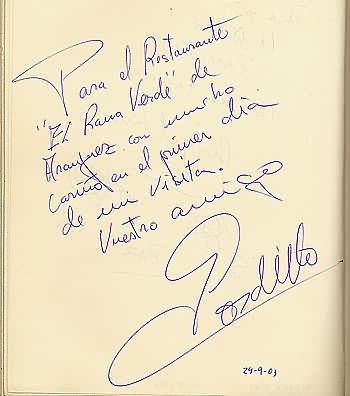 Para el Restaurante
"El Rana Verde" de
Aranjuez con mucho
Cariño en el primer día
de mi visita.
Vuestro amigo
Pordillo
24-9-03